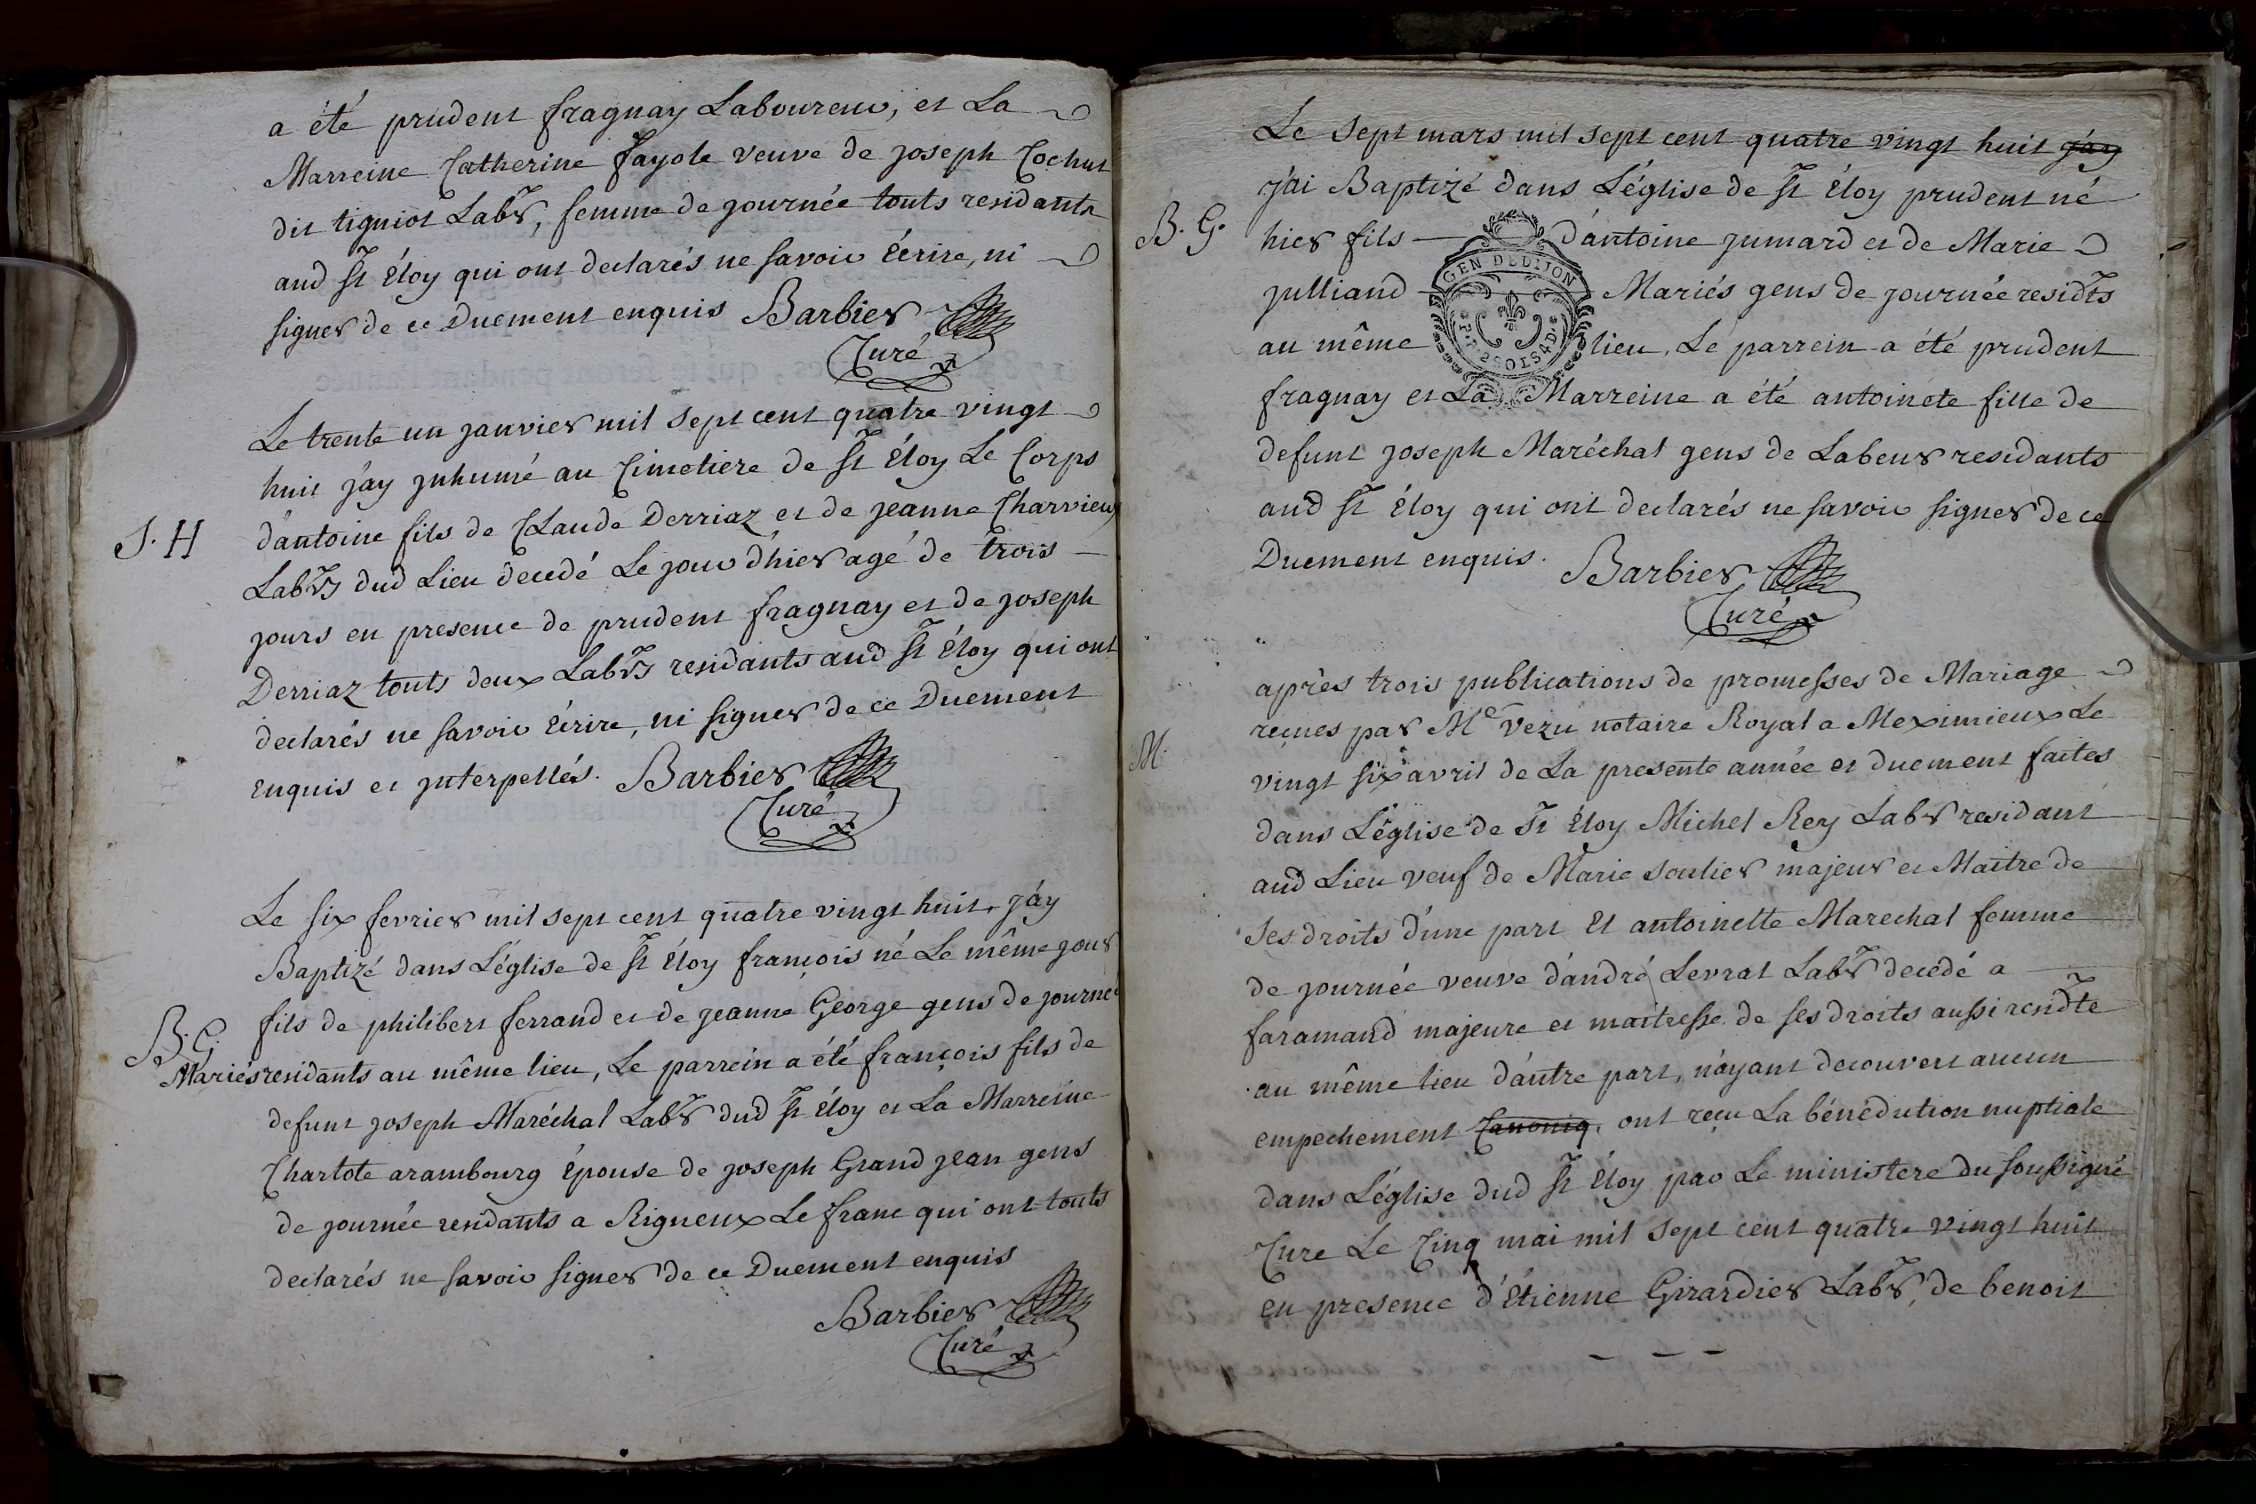 a été prudent fragnay Laboureur, et La
Marreine Catherine fayole veuve de joseph Cochut
dit tigniot Labr, femme de journée touts residants
aud St Éloy qui ont declarés ne savoir Écrire, ni
signer de ce Duement enquis Barbier
Curé
Le trente un janvier mil sept cent quatre vingt
huit j'ay jnhumé au Cimetiere de St Éloy Le Corps
d'antoine fils de Claude Derriaz et de jeanne Charvieux
S. H
Labrs dud Lieu decedé Le jour d'hier agé de trois
jours en presence de prudent fragnay et de joseph
Derriaz touts deux Labrs residants aud St Éloy qui ont
declarés ne savoir Écrire, ni signer de ce Duement
Enquis et jnterpellés. Barbier
Curé
Le six fevrier mil sept cent quatre vingt huit, j'ay
Baptizé dans L'église de St Éloy françois né Le même jour
fils de philibert ferrand et de jeanne George gens de journée
B. G.
Mariés residants au même lieu, Le parrein a été françois fils de
defunt joseph Maréchal Labr dud St Éloy et La Marreine
Charlote arambourg Épouse de joseph Grand jean gens
de journée residants a Rigneux Le franc qui ont touts
declarés ne savoir signer de ce Duement enquis
Barbier
Curé
Le sept mars mil sept cent quatre vingt huit j'ay
j'ai Baptizé dans L'église de St Éloy prudent né
B. G.
hier fils d'antoine jumard et de Marie
julliand Mariés gens de journée residts
GEN DE DIJON
au même lieu. Le parrein a été prudent
fragnay et La Marreine a été antoinete fille de
defunt joseph Maréchal gens de Labeur residants
aud St Éloy qui ont declarés ne savoir signer de ce
Duement enquis. Barbier
Curé
après trois publications de promesses de Mariage
reçues par Me vezu notaire Royal a Meximieux Le
M.
vingt six avril de La presente année et duement faites
dans L'église de St Éloy Michel Rey Labr residant
aud Lieu veuf de Marie soulier majeur et Maitre de
ses droits d'une part Et antoinette Marechal femme
de journée veuve d'andré Levrat Labr decedé a
faramand majeure et maitresse de ses droits aussi residte
au même lieu d'autre part, n'ayant decouvert aucun
empechement Canoniq. ont reçu La bénédiction nuptiale
dans L'église dud St Éloy par Le ministere du soussigné
Cure Le Cinq mai mil sept cent quatre vingt huit
en presence d'Etienne Girardier Labr, de benoit